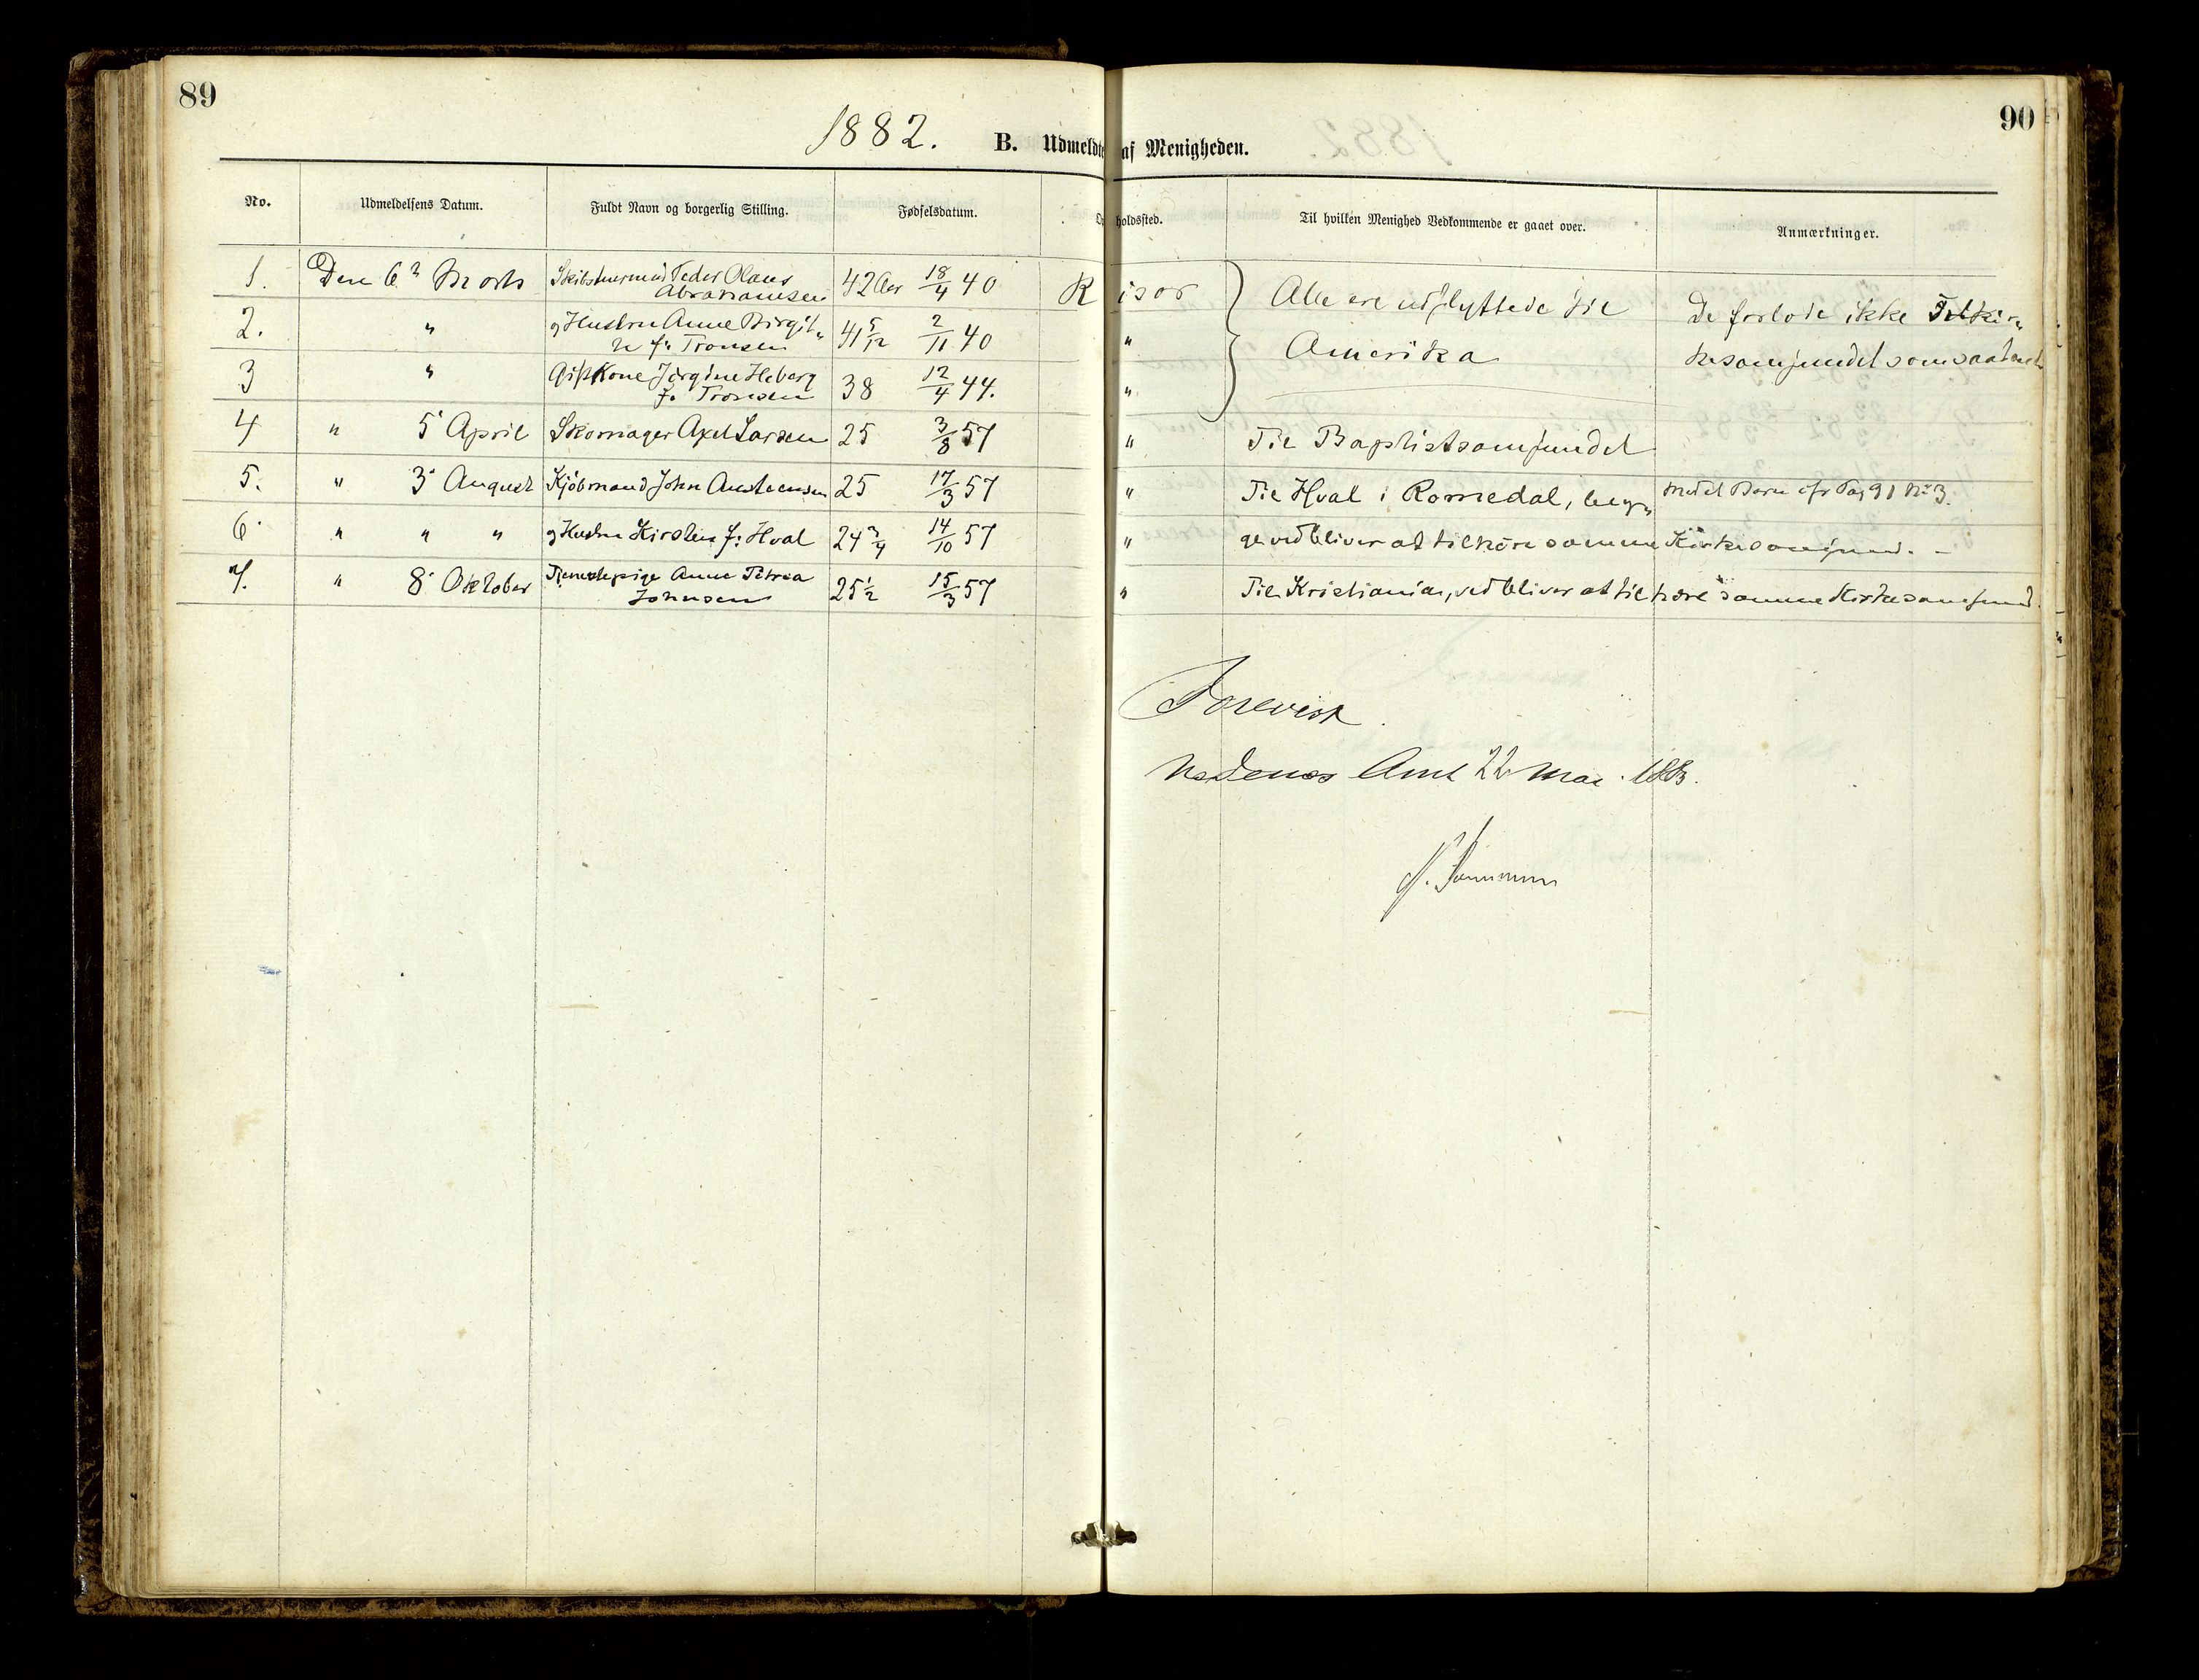 89
90
1882. B. Udmeldte af Menigheden.
No. Udmeldelsens Datum. Fuldt Navn og borgerlig Stilling. Fødselsdatum. Opholdssted. Til hvilken Menighed Vedkommende er gaaet over. Anmærkninger.
1. Den 6 Marts Skibstuermand Peder Olaus Abrahamsen 42 Aar 18/4 40 Risør Alle ere udflyttede til De forlode ikke
2. " og Hustru Anne Birgit„ te f: Tronsen 41 5/12 2/11 40 " Amerika kesamfundet som saadant
3 " Gift Kone Jørgine Heberg f. Tronsen 38 12/4 44. "
4 " 5' April Skomager Axel Larsen 25 3/8 57 " Til Baptistsamfundet
5. " 3' August Kjöbmand John Austeensen 25 17/3 57 " Til Hval i Romedal, beg„ med et Barn cfr Pag 91 No 3.
6 " " " og Hustru Kirsten f: Hval 24 3/4 14/10 57 " ge vedbliver at tilhöre samme Kirkesamfund. -
7. " 8' Oktober Tjenestepige Anne Petrea Johnsen 25 1/2 15/3 57 " Til Kristiania, vedbliver at tilhøre samme Kirkesamfund.
Forevist.
Nedenæs Amt 22 Mai 1883.